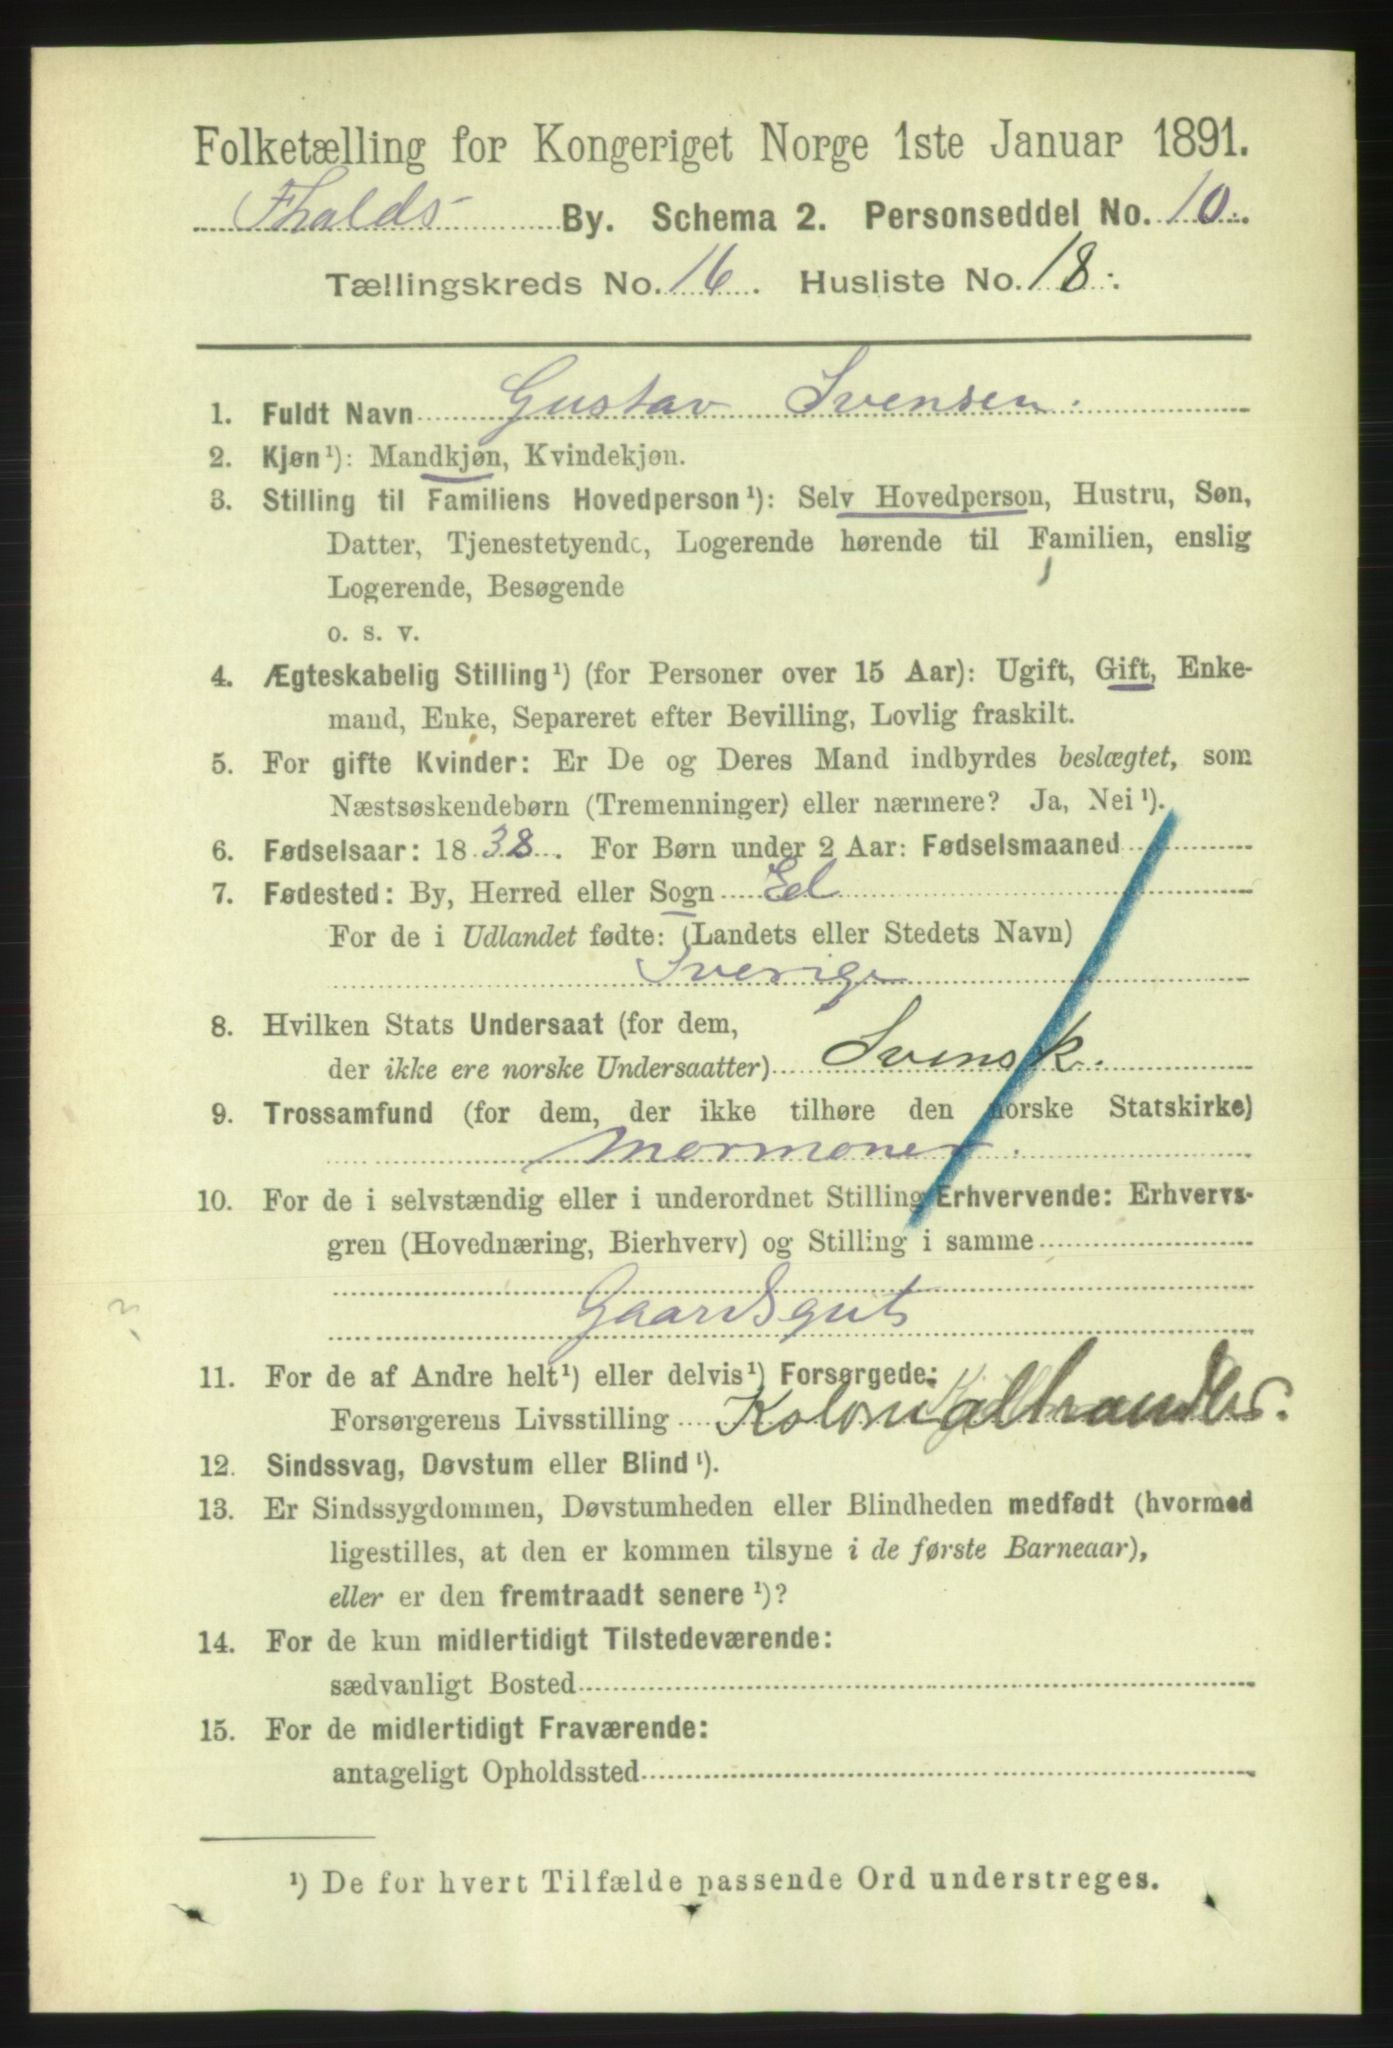 Folketælling for Kongeriget Norge 1ste Januar 1891.
Fhalds By. Schema 2. Personseddel No. 10.
Tællingskreds No. 16. Husliste No. 18.
1. Fuldt Navn Gustav Svensen.
2. Kjøn¹): Mandkjøn, Kvindekjøn.
3. Stilling til Familiens Hovedperson¹): Selv Hovedperson, Hustru, Søn,
Datter, Tjenestetyende, Logerende hørende til Familien, enslig
Logerende, Besøgende
o. s. v.
4. Ægteskabelig Stilling¹) (for Personer over 15 Aar): Ugift, Gift, Enke-
mand, Enke, Separeret efter Bevilling, Lovlig fraskilt.
5. For gifte Kvinder: Er De og Deres Mand indbyrdes beslægtet, som
Næstsøskendebørn (Tremenninger) eller nærmere? Ja, Nei¹).
6. Fødselsaar: 1838. For Børn under 2 Aar: Fødselsmaaned
7. Fødested: By, Herred eller Sogn Ed
For de i Udlandet fødte: (Landets eller Stedets Navn)
Sverige
8. Hvilken Stats Undersaat (for dem,
der ikke ere norske Undersaatter) Svensk.
9. Trossamfund (for dem, der ikke tilhøre den norske Statskirke)
Mormoner.
10. For de i selvstændig eller i underordnet Stilling Erhvervende: Erhvervs-
gren (Hovednæring, Bierhverv) og Stilling i samme
Gaardsgut
11. For de af Andre helt¹) eller delvis¹) Forsørgede:
Forsørgerens Livsstilling Kolonialhandler.
12. Sindssvag, Døvstum eller Blind¹).
13. Er Sindssygdommen, Døvstumheden eller Blindheden medfødt (hvormed
ligestilles, at den er kommen tilsyne i de første Barneaar),
eller er den fremtraadt senere¹)?
14. For de kun midlertidigt Tilstedeværende:
sædvanligt Bosted
15. For de midlertidigt Fraværende:
antageligt Opholdssted
¹) De for hvert Tilfælde passende Ord understreges.